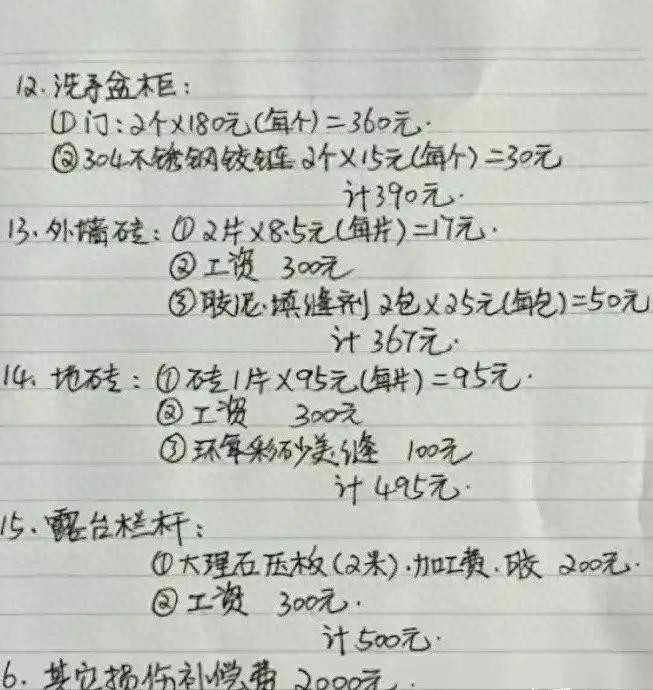 12. 洗手盆柜：
① 门：2个×180元(每个)=360元.
② 304不锈钢铰链 2个×15元(每个)=30元
计390元.
13. 外墙砖：① 2片×8.5元(每片)=17元.
② 工资 300元
③ 胶泥.填缝剂 2包×25元(每包)=50元
计 367元.
14. 地砖：① 砖1片×95元(每片)=95元.
② 工资 300元
③ 环氧彩砂美缝 100元
计 495元.
15. 露台栏杆：
① 大理石压板(2米).加工费.胶 200元.
② 工资 300元.
计500元.
6. 其它损伤补偿费 2000元.